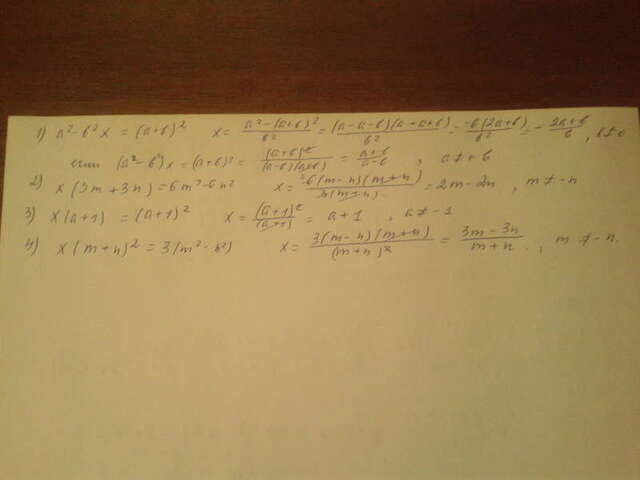 1) a² - b²x = (a+b)²   x = (a²-(a+b)²)/b² = (a-a-b)(a+a+b)/b² = -b(2a+b)/b² = -(2a+b)/b, b≠0
если (a²-b²)x = (a+b)² = (a+b)²/((a-b)(a+b)) = (a+b)/(a-b), a≠+b
2) x(3m+3n) = 6m²-6n²   x = 6(m-n)(m+n)/3(m+n) = 2m-2n, m≠-n
3) x(a+1) = (a+1)²   x = (a+1)²/(a+1) = a+1, a≠-1
4) x(m+n)² = 3(m²-n²)   x = 3(m-n)(m+n)/(m+n)² = (3m-3n)/(m+n), m≠-n.